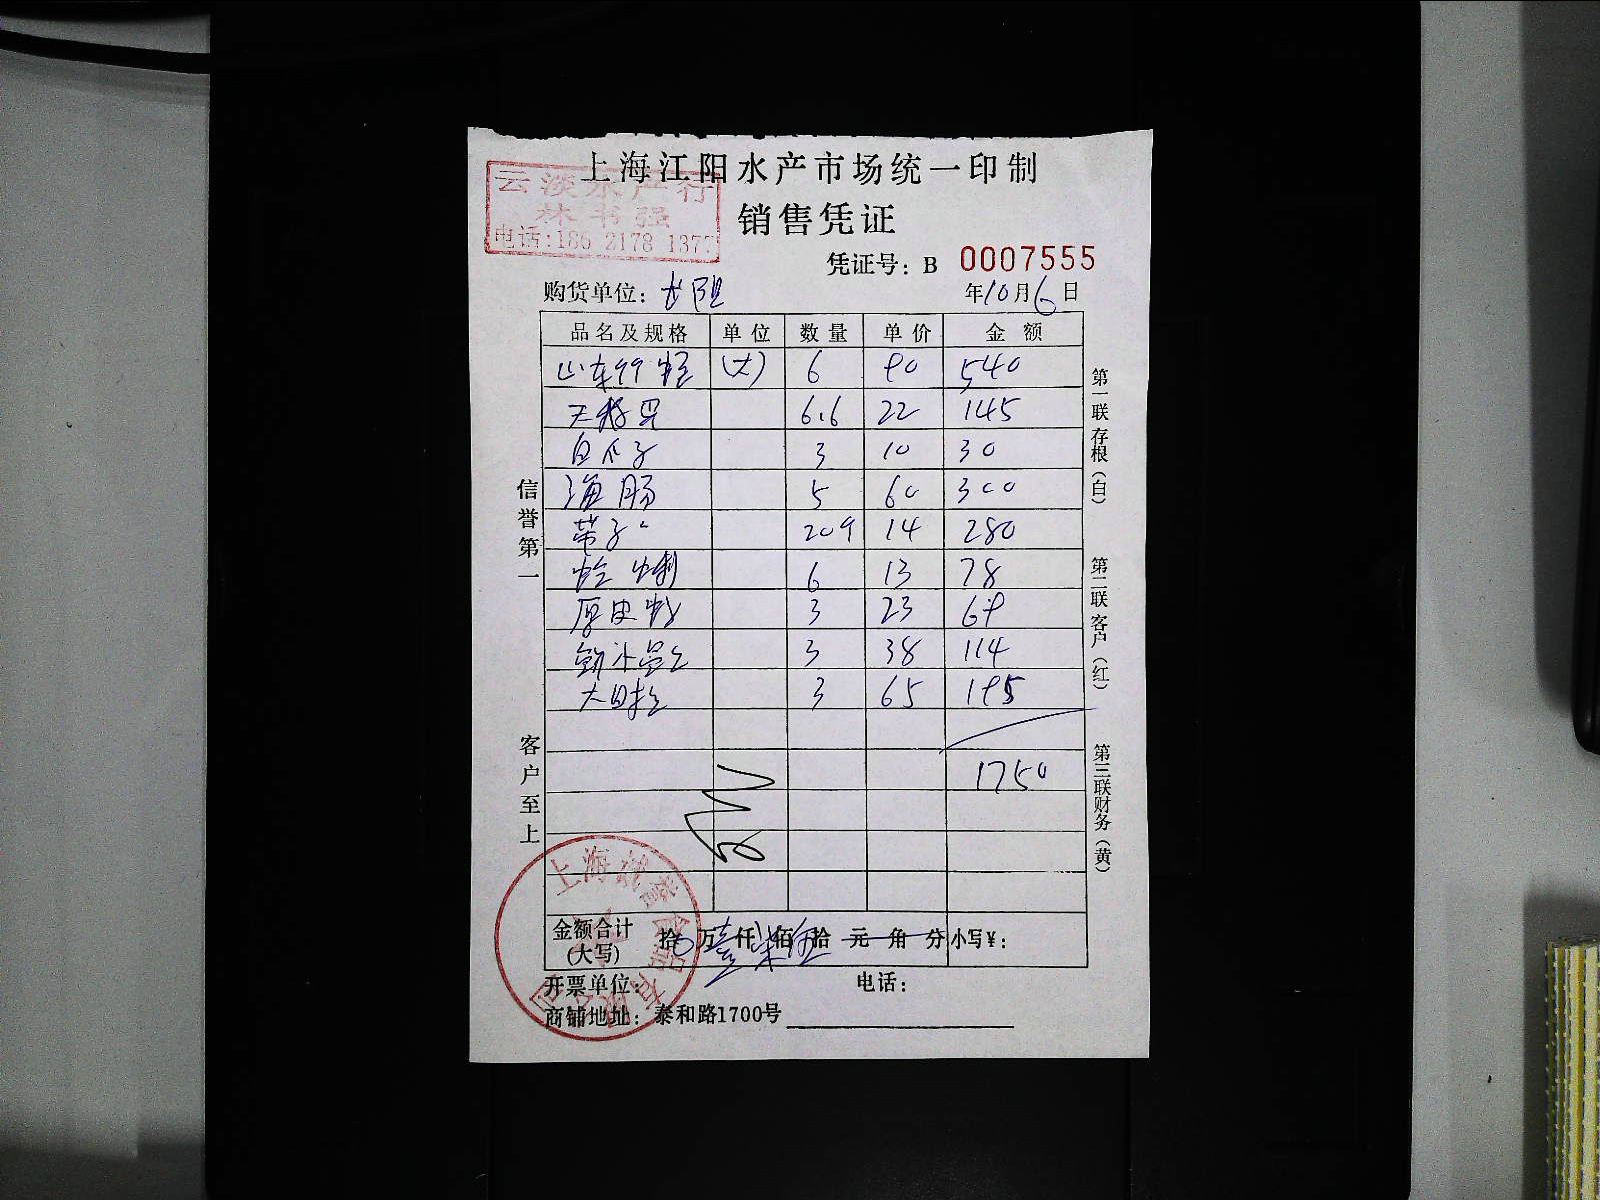 上海江阳水产市场统一印制
云淡水产行
林书强
电话:186 2178 1377
销售凭证
凭证号: B 0007555
购货单位:
年10月6日
品名及规格 单位 数量 单价 金额
山东 (大) 6 90 540
6.6 22 145
白瓜子 3 10 30
海肠 5 60 300
带子 209 14 280
6 13 78
厚皮 3 23 69
3 38 114
大 3 65 195
1750
金额合计(大写) 拾 万 壹仟 柒佰 伍拾 元 角 分 小写¥:
开票单位: 电话:
商铺地址: 泰和路1700号
信誉第一
客户至上
第一联 存根(白)
第二联 客户(红)
第三联 财务(黄)